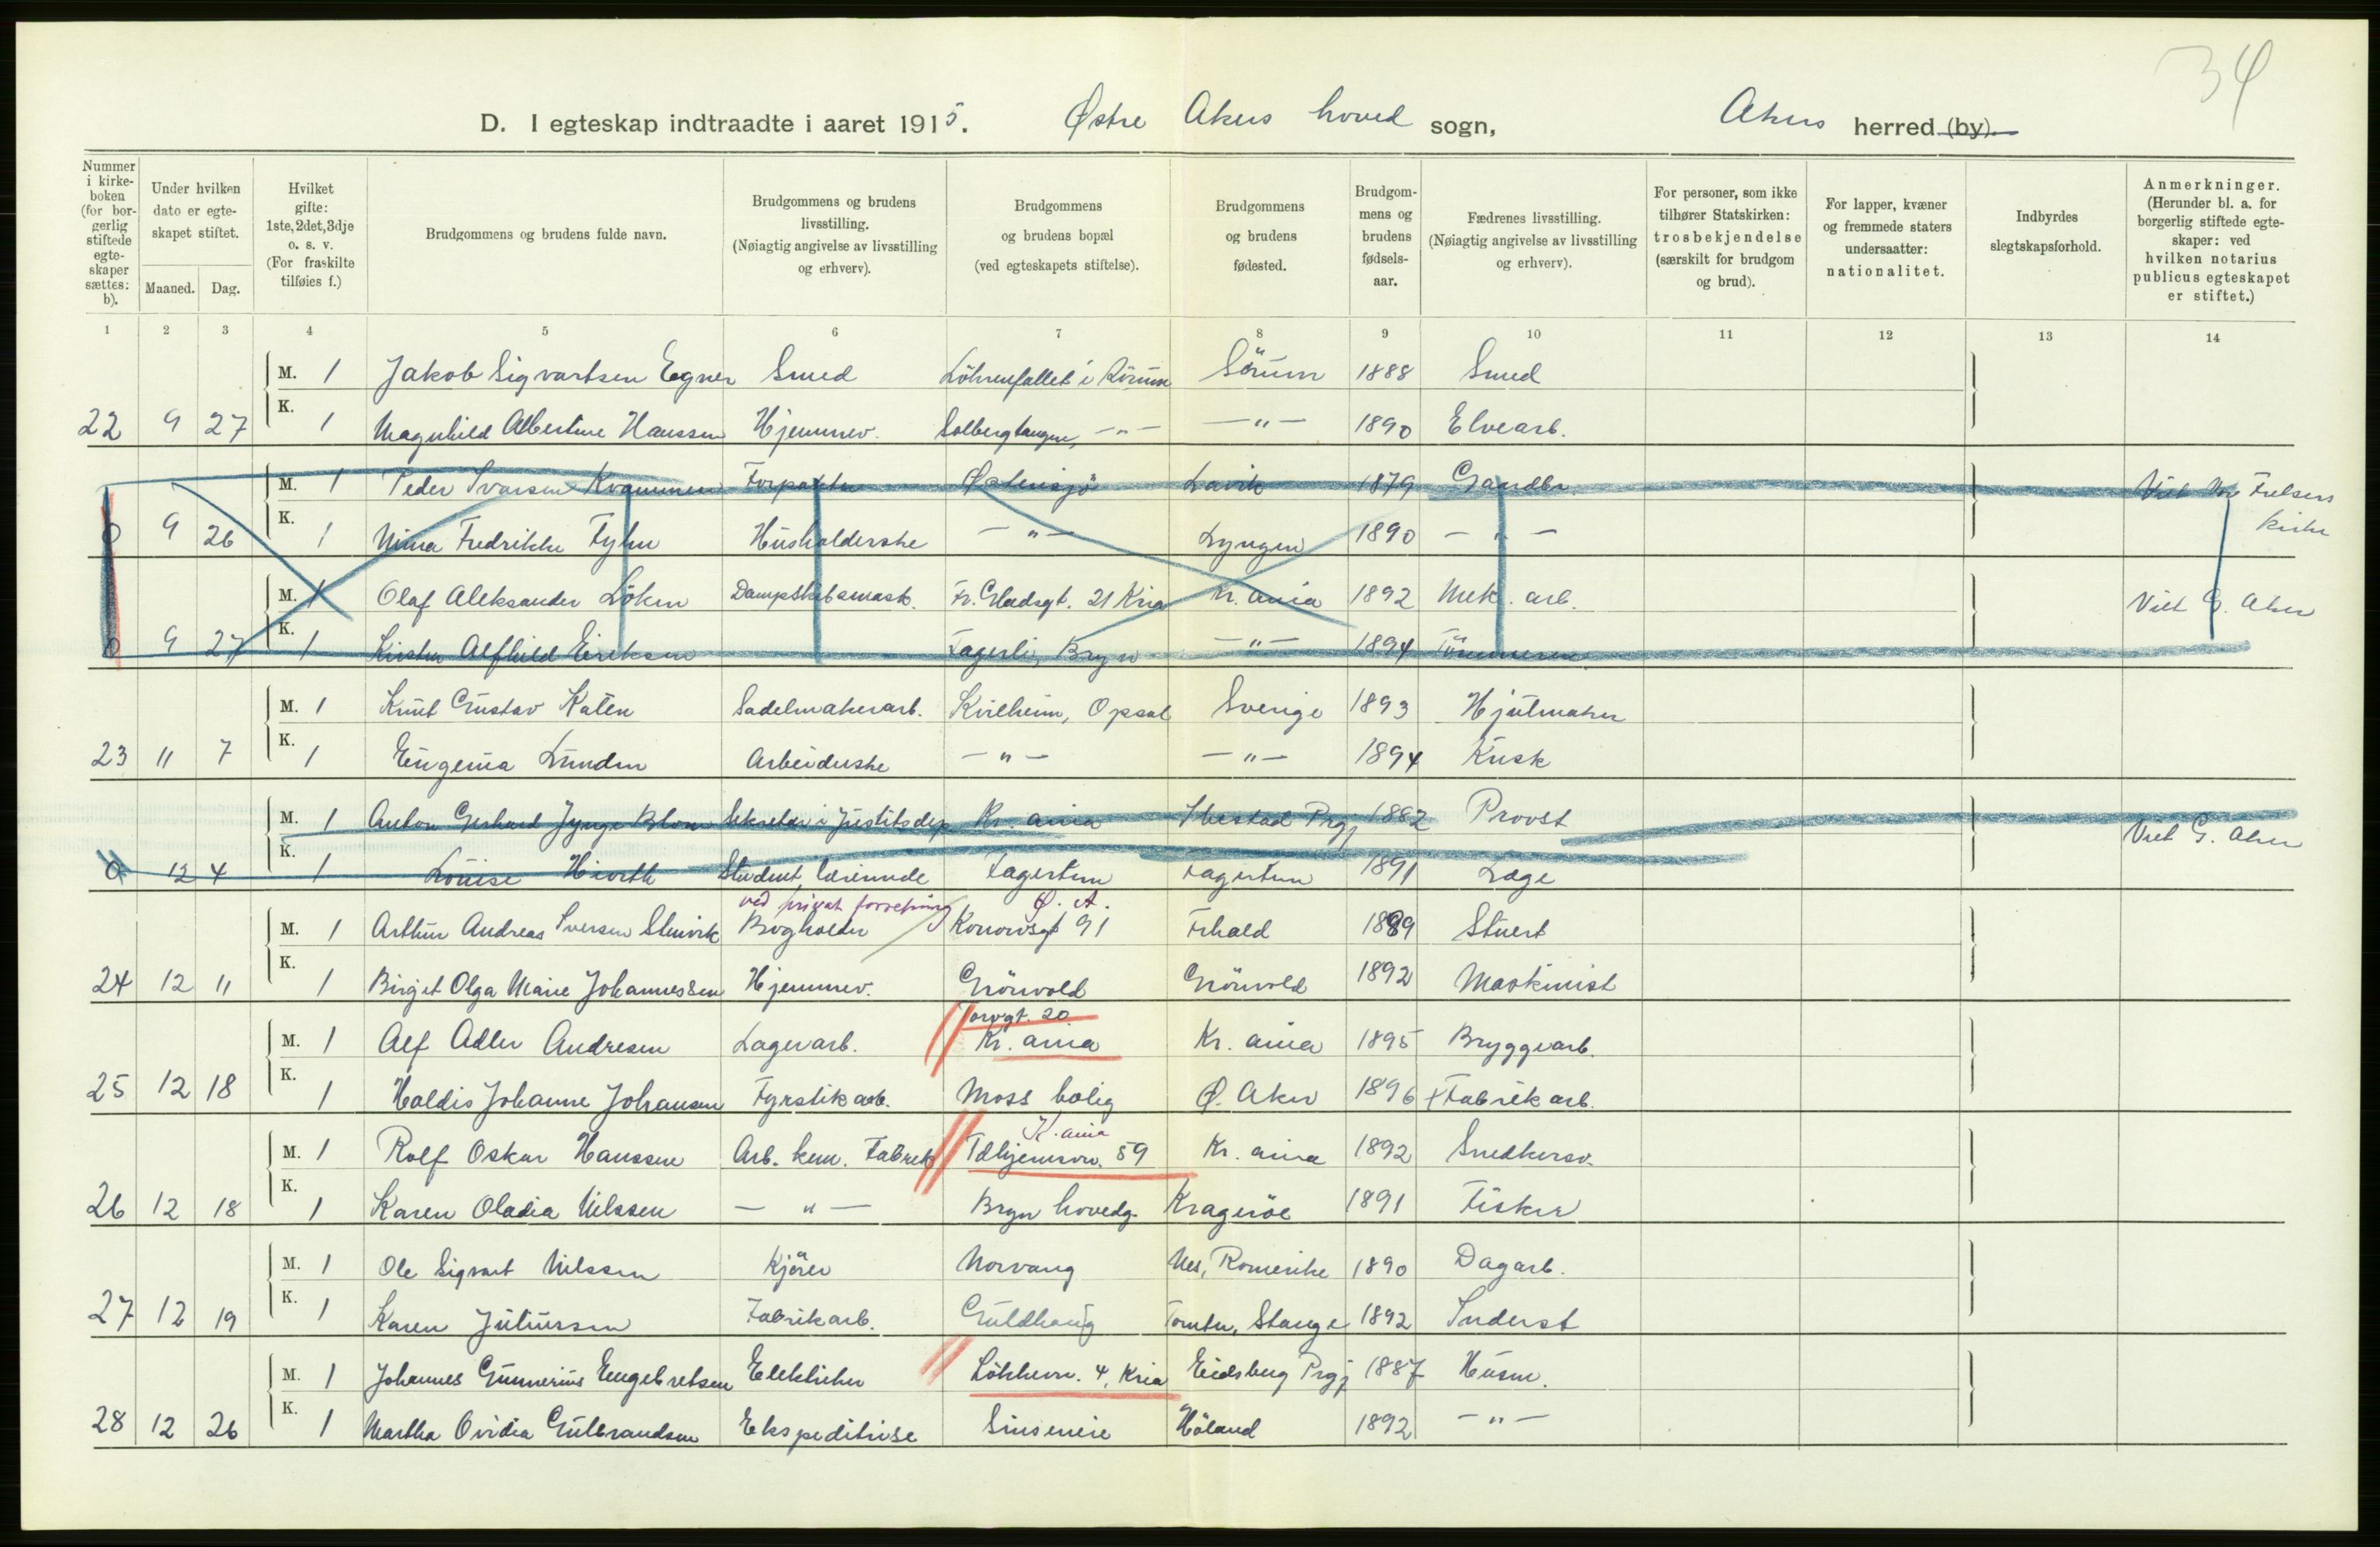 34
D. I egteskap indtraadte i aaret 1915. Østre Akers hoved sogn, Akers herred (by).
Nummer i kirke-boken (for bor-gerlig stiftede egte-skaper sættes: b).
Under hvilken dato er egte-skapet stiftet.
Maaned. Dag.
Hvilket gifte: 1ste, 2det, 3dje o. s. v. (For fraskilte tilføies f.)
Brudgommens og brudens fulde navn.
Brudgommens og brudens livsstilling. (Nøiagtig angivelse av livsstilling og erhverv).
Brudgommens og brudens bopæl (ved egteskapets stiftelse).
Brudgommens og brudens fødested.
Brudgom-mens og brudens fødsels-aar.
Fædrenes livsstilling. (Nøiagtig angivelse av livsstilling og erhverv).
For personer, som ikke tilhører Statskirken: trosbekjendelse (særskilt for brudgom og brud).
For lapper, kvæner og fremmede staters undersaatter: nationalitet.
Indbyrdes slegtskapsforhold.
Anmerkninger. (Herunder bl. a. for borgerlig stiftede egte-skaper: ved hvilken notarius publicus egteskapet er stiftet.)
1 2 3 4 5 6 7 8 9 10 11 12 13 14
M. 1 Jakob Sigvartsen Egner Smed i Sörum Sörum 1888 Smed
22 9 27 K. 1 Magnhild Albertine Hanssen Hjemmev. Solbergtangen, -"- -"- 1890 Elvearb.
M. 1 Peder Ivarsen Kvammen Forpakter Østensjö Lavik 1879 Gaardbr. Viet Vor Frelsers kirke
0 9 26 K. 1 Nina Fredrikke Fyhn Husholderske -"- Lyngen 1890 -"-
M. 1 Olaf Aleksander Löken Dampskibsmask. Fr. Gladsgt. 21 Kria Kr.ania 1892 Mek. arb. Viet G. Aker
0 9 27 K. 1 Kirsten Alfhild Eriksen Fagerli, Bryn -"- 1894 Tömmerm.
M. 1 Knut Gustav Kalén Sadelmakerarb. Opsal Sverige 1893 Hjulmaker
23 11 7 K. 1 Eugenia Lunden Arbeiderske -"- -"- 1894 Kusk
M. 1 Anton Gerhard Jynge Blom Sekretær i Justitsdep Kr.ania Ibestad Prgj 1882 Provst Viet G. Aker
0 12 4 K. 1 Louise Hiorth Student, lærerinde Fagertun Fagertun 1891 Læge
ved privat forretning Ø. A.
M. 1 Arthur Andreas Iversen Stenvik Bogholder 91 Frhald 1889 Stuert
24 12 11 K. 1 Birgit Olga Marie Johannessen Hjemmev. Grönvold Grönvold 1892 Maskinist
Torvgt. 20
M. 1 Alf Adler Andresen Lagerarb. Kr.ania Kr.ania 1895 Bryggearb.
25 12 18 K. 1 Haldis Johanne Johansen Fyrstikarb. Moss bolig Ø. Aker 1896 Fabrikarb.
K.ania
M. 1 Rolf Oskar Hanssen Arb. kem. Fabrik Tdhjemsvn. 59 Kr.ania 1892 Snedkersv.
26 12 18 K. 1 Karen Oladia Nilssen -"- Bryn hovedg. Kragerøe 1891 Fisker
M. 1 Ole Sigvart Nilssen Kjörer Norvang Nes, Romerike 1890 Dagarb.
27 12 19 K. 1 Karen Juliussen Fabrikarb. Guldhaug Tomter, Stange 1892 Inderst
M. 1 Johannes Gunnerius Engebretsen Elektriker Lökkevn. 4, Kria Eidsberg Prgj 1887 Husm.
28 12 26 K. 1 Martha Ovidia Gulbrandsen Ekspeditrise Sinseneie Höland 1892 -"-